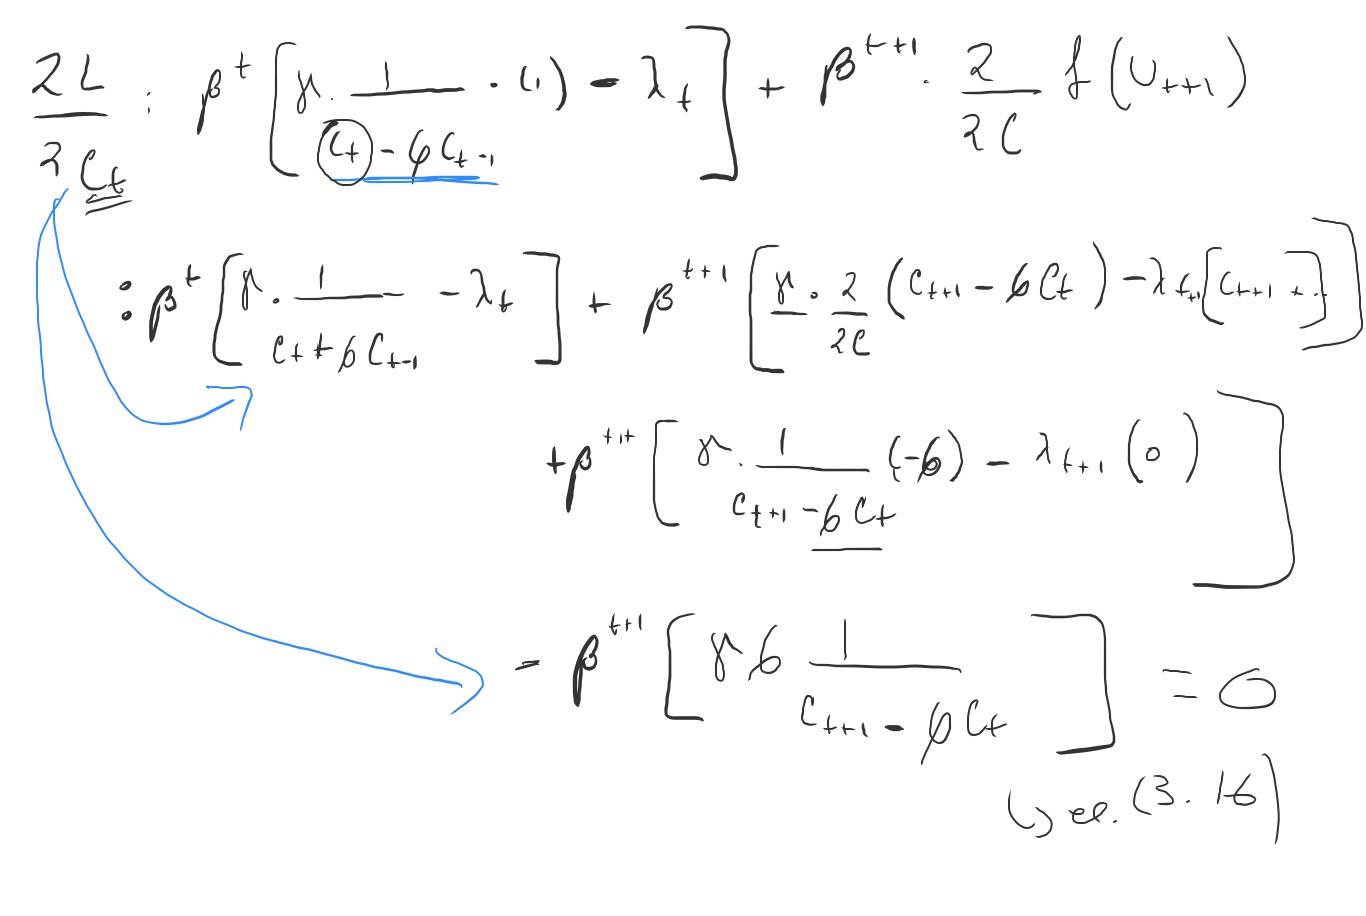 ∂L/∂C_t : β^t [γ · 1/(C_t − φC_{t-1}) · (1) − λ_t] + β^{t+1} · ∂/∂C f(U_{t+1})
: β^t [γ · 1/(C_t + φC_{t-1}) − λ_t] + β^{t+1} [γ · ∂/∂C (C_{t+1} − φC_t) − λ_{t+1} [C_{t+1} + ..]]
+β^{t+1} [γ · 1/(C_{t+1} − φC_t) (−φ) − λ_{t+1} (0)]
− β^{t+1} [γφ 1/(C_{t+1} − φC_t)] = 0
↳ ec. (3.16)